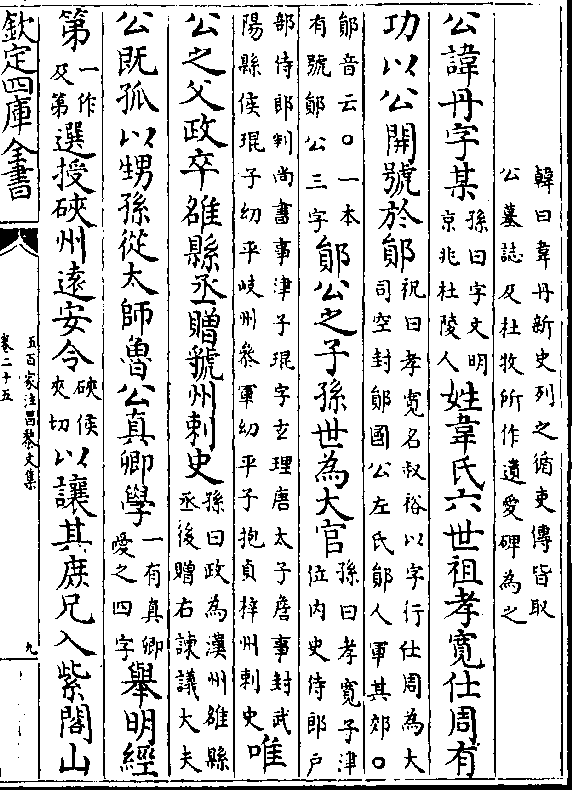 韓曰韋丹新史列之循吏傳皆取
公墓誌及杜牧所作遺愛碑為之
公諱丹字某孫曰字文明京兆杜陵人姓韋氏六世祖孝寛仕周有
功以公開號於鄖祝曰孝寛名叔裕以字行仕周為大司空封鄖國公左氏鄖人軍其郊〇
鄖音云〇一本有號鄖公三字鄖公之子孫世為大官孫曰孝寛子津位内史侍郎户
部侍郎判尚書事津子琨字玄理唐太子詹事封武陽縣侯琨子幼平岐州叅軍幼平子抱貞梓州刺史唯
公之父政卒雒縣丞贈虢州刺史孫曰政為漢州雒縣丞後贈右諫議大夫
公既孤以甥孫從太師魯公真卿學一有真卿愛之四字舉明經
第一作及第選授硤州逺安令硤侯夾切以讓其庶兄入紫閣山
欽定四庫全書
五百家注昌黎文集
卷二十五
九